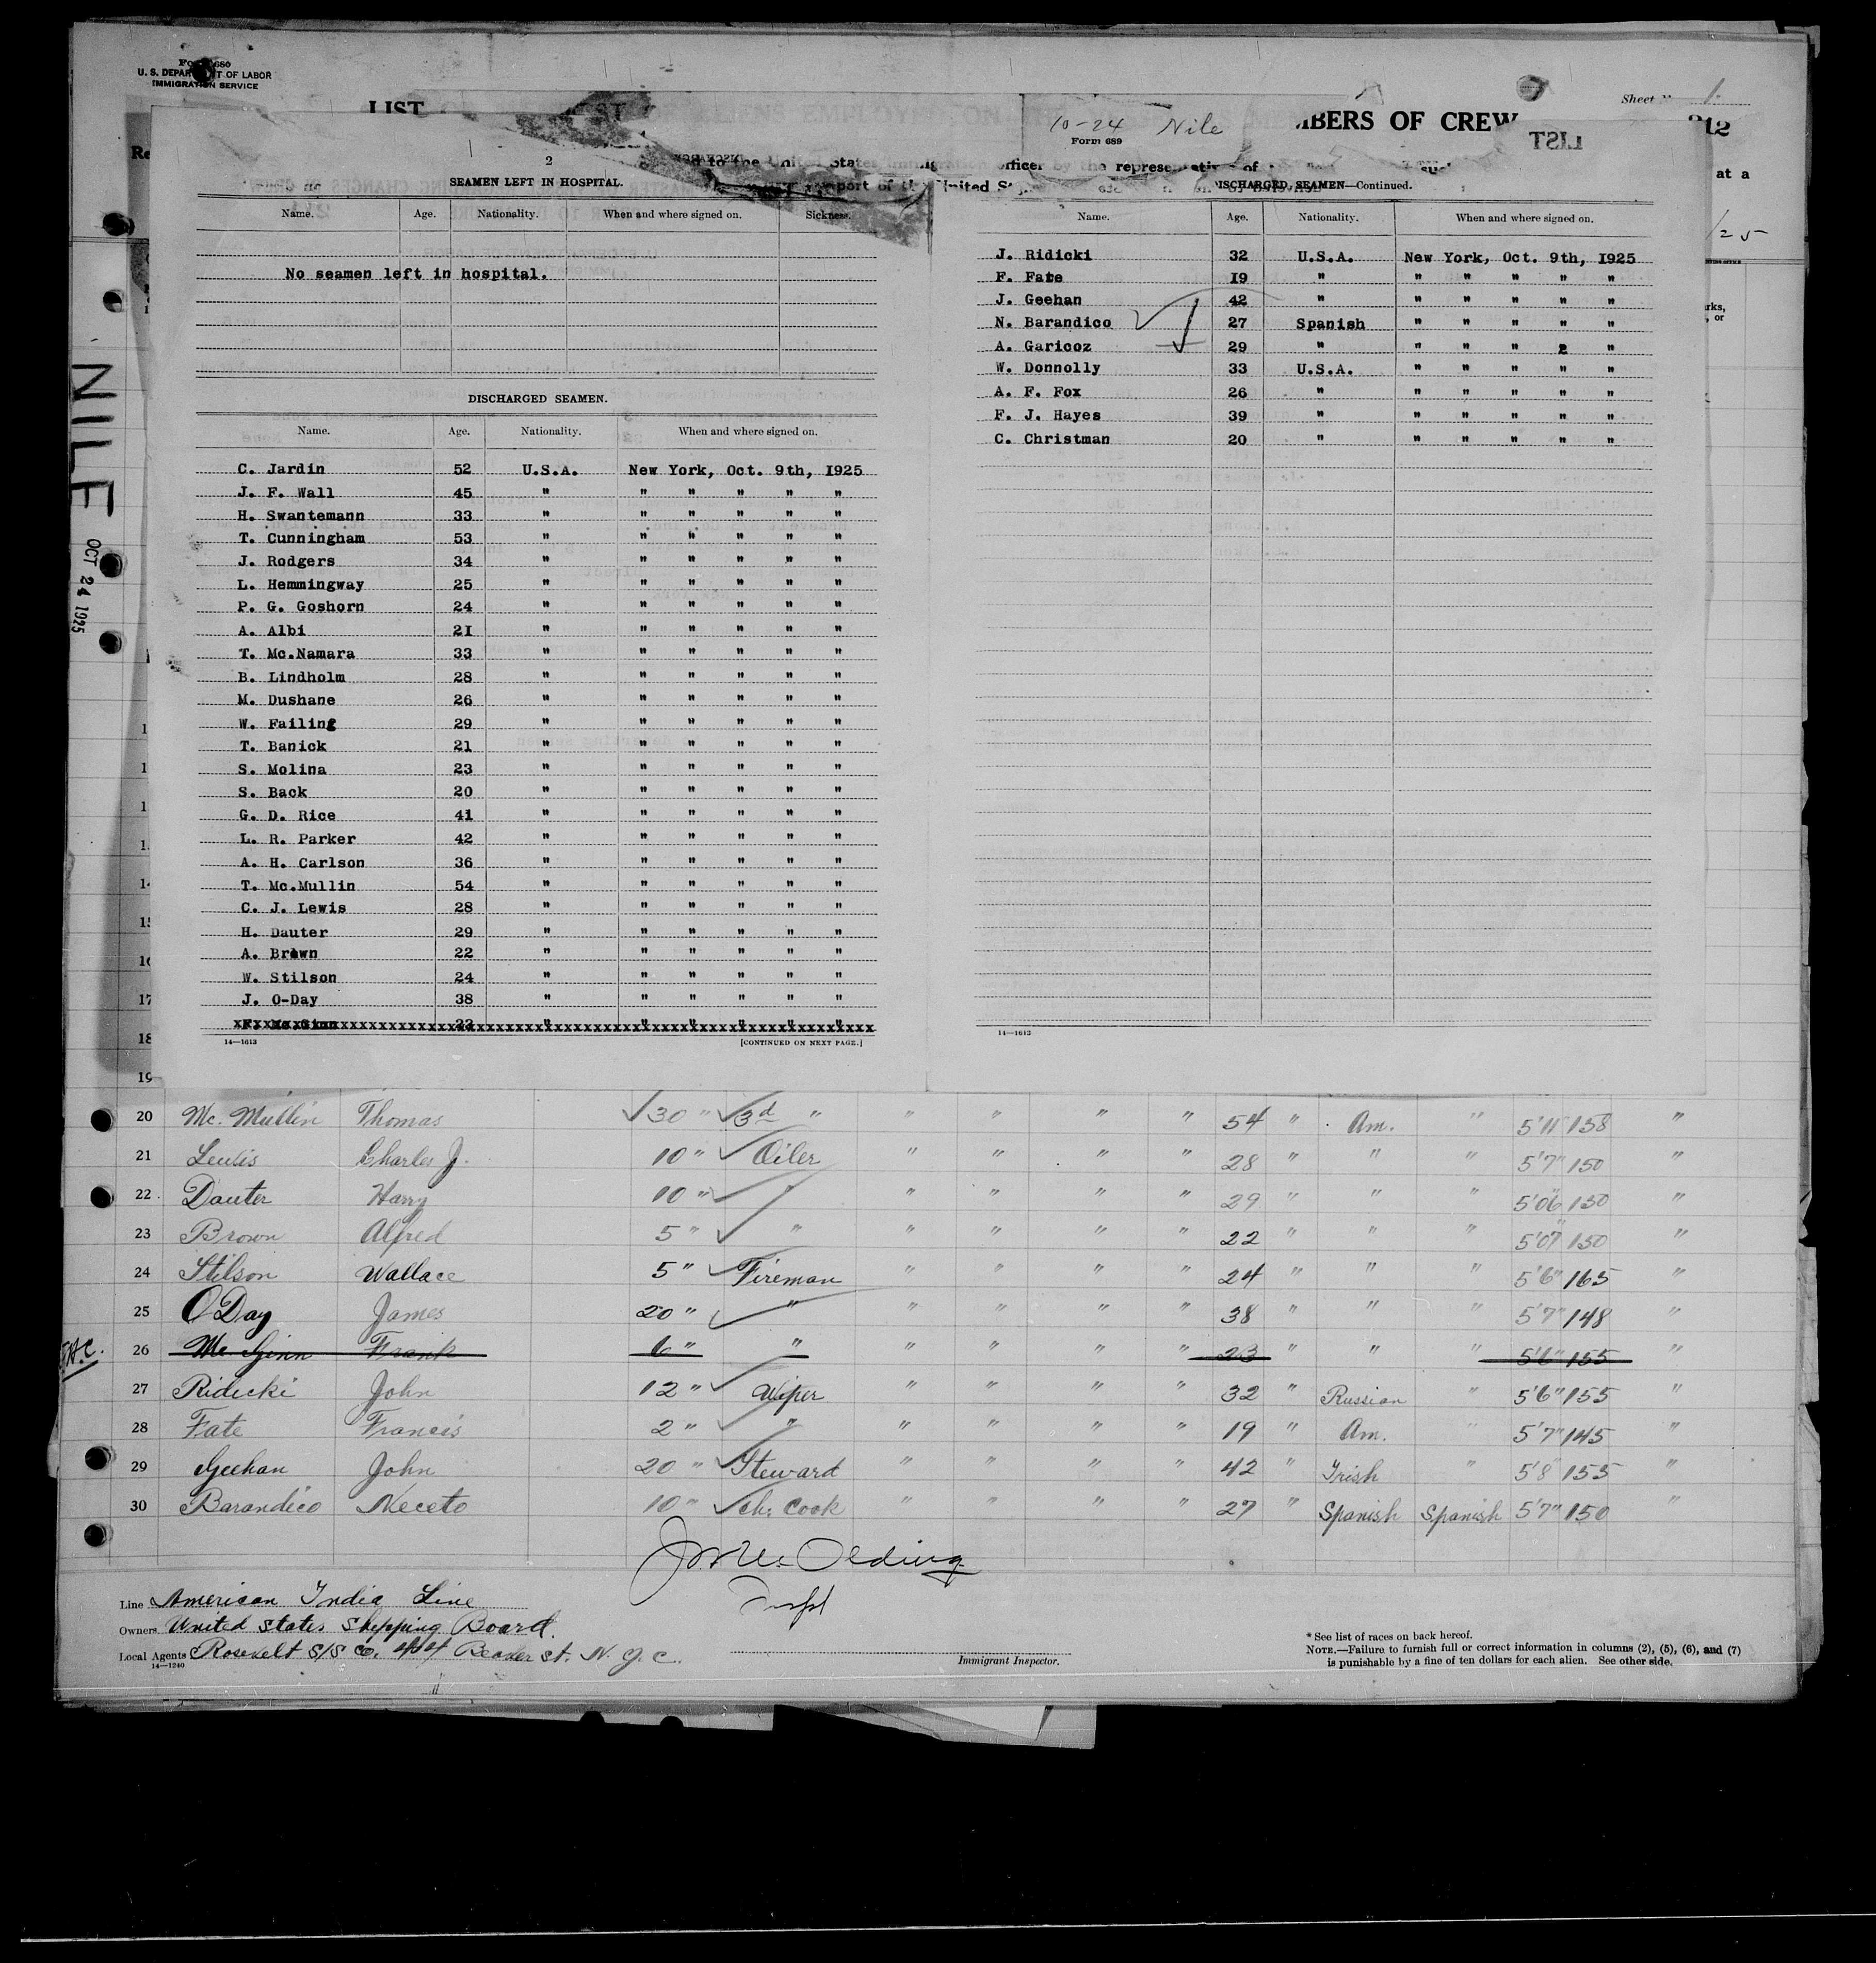 U. S. DEPARTMENT OF LABOR
IMMIGRATION SERVICE
LIST
MBERS OF CREW
Sheet 1
LIST
at a
10-24 Nile
Form 689
2
SEAMEN LEFT IN HOSPITAL.
Name. Age. Nationality. When and where signed on. Sickness.
No seamen left in hospital.
DISCHARGED SEAMEN.
Name. Age. Nationality. When and where signed on.
C. Jardin 52 U.S.A. New York, Oct. 9th, 1925
J. F. Wall 45 " " " " " "
H. Swantemann 33 " " " " " "
T. Cunningham 53 " " " " " "
J. Rodgers 34 " " " " " "
L. Hemmingway 25 " " " " " "
P. G. Goshorn 24 " " " " " "
A. Albi 21 " " " " " "
T. Mc.Namara 33 " " " " " "
B. Lindholm 28 " " " " " "
M. Dushane 26 " " " " " "
W. Failing 29 " " " " " "
T. Banick 21 " " " " " "
S. Molina 23 " " " " " "
S. Back 20 " " " " " "
G. D. Rice 41 " " " " " "
L. R. Parker 42 " " " " " "
A. H. Carlson 36 " " " " " "
T. Mc.Mullin 54 " " " " " "
C. J. Lewis 28 " " " " " "
H. Dauter 29 " " " " " "
A. Brown 22 " " " " " "
W. Stilson 24 " " " " " "
J. O-Day 38 " " " " " "
F. Mc.Ginn 23 " " " " " "
14—1613 [CONTINUED ON NEXT PAGE.]
DISCHARGED SEAMEN—Continued.
Name. Age. Nationality. When and where signed on.
J. Ridicki 32 U.S.A. New York, Oct. 9th, 1925
F. Fate 19 " " " " " "
J. Geehan 42 " " " " " "
N. Barandico 27 Spanish " " " " "
A. Garicoz 29 " " " " 2 "
W. Donnolly 33 U.S.A. " " " " "
A. F. Fox 26 " " " " " "
F. J. Hayes 39 " " " " " "
C. Christman 20 " " " " " "
14—1613
NILE
OCT 24 1925
14
15
16
17
18
19
20 Mc. Mullin Thomas 30 " 3d " " " " " 54 " Am. " 5'11" 158 "
21 Lewis Charles J. 10 " Oiler " " " " 28 " " " 5'7" 150 "
22 Dauter Harry 10 " " " " " " 29 " " " 5'06 150 "
23 Brown Alfred 5 " " " " " " 22 " " " 5'07 150 "
24 Stilson Wallace 5 " Fireman " " " " 24 " " " 5'6" 165 "
25 O Day James 20 " " " " " " 38 " " " 5'7" 148 "
26 Mc Ginn Frank 6 " " " " " " 23 " " " 5'6" 155 "
27 Ridicki John 12 " Wiper " " " " 32 " Russian " 5'6" 155 "
28 Fate Francis 2 " " " " " " 19 " Am. " 5'7" 145 "
29 Geehan John 20 " Steward " " " " 42 " Irish " 5'8" 155 "
30 Barandico Neceto 10 " Ch. Cook " " " " 27 " Spanish Spanish 5'7" 150 "
Line American India Line
Owners United States Shipping Board.
Local Agents Rosevelt S/S Co. 44 Beaver St. N. Y. C.
14—1240
Immigrant Inspector.
* See list of races on back hereof.
NOTE.—Failure to furnish full or correct information in columns (2), (5), (6), and (7)
is punishable by a fine of ten dollars for each alien. See other side.